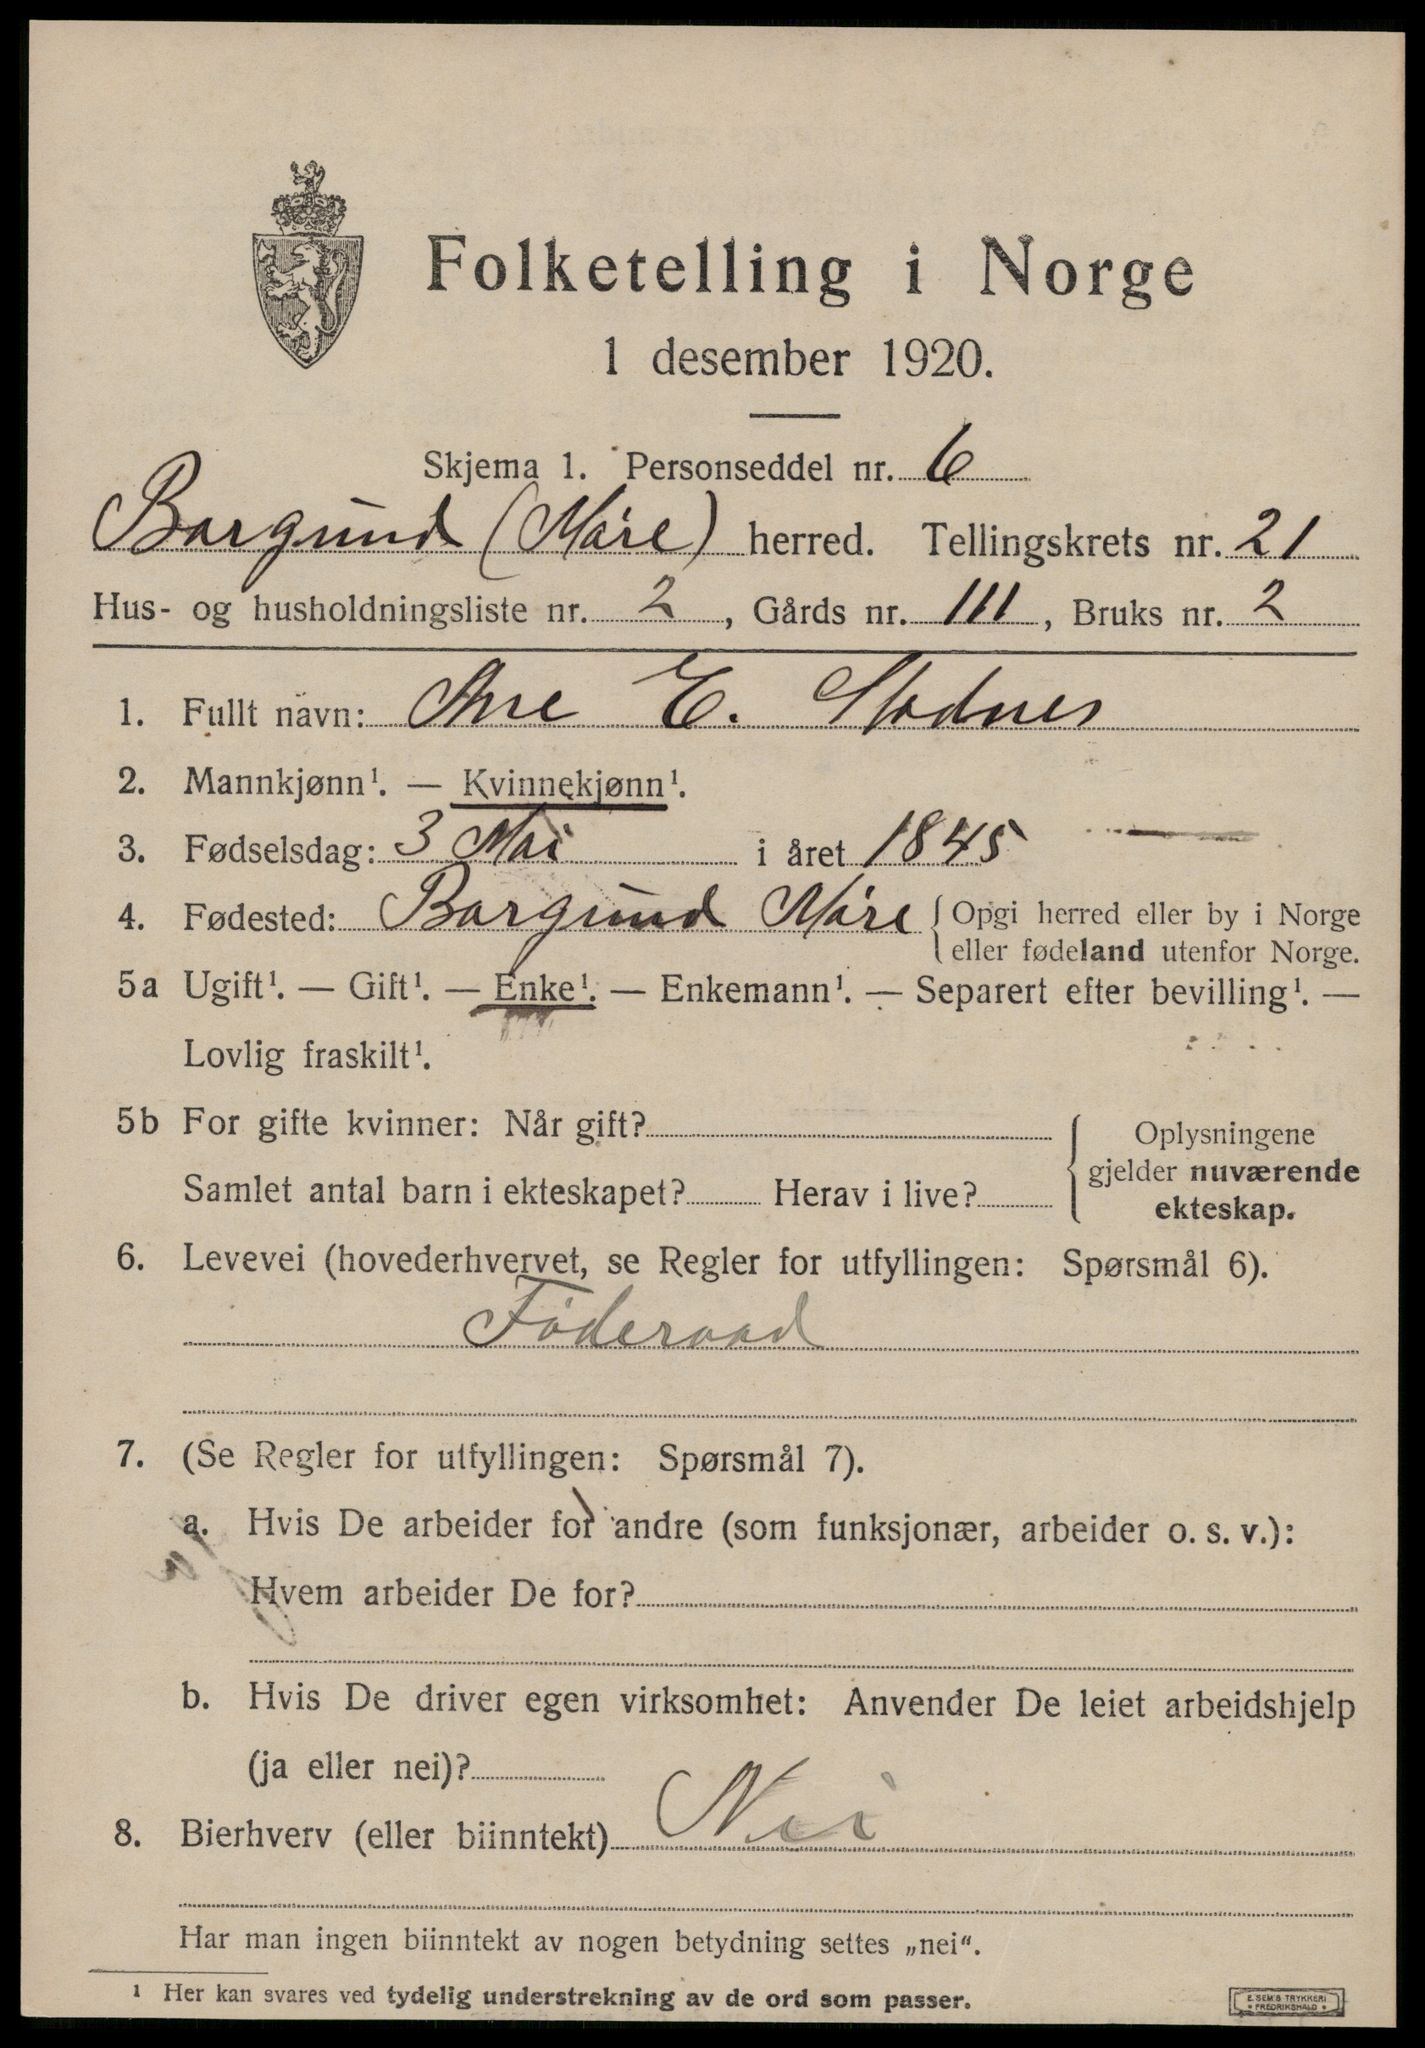 Folketelling i Norge
1 desember 1920.
Skjema 1. Personseddel nr. 6
Borgund (Møre) herred. Tellingskrets nr. 21
Hus- og husholdningsliste nr. 2, Gårds nr. 111, Bruks nr. 2
1. Fullt navn: Ane E. Stadnes
2. Mannkjønn¹. — Kvinnekjønn¹.
3. Fødselsdag: 3 Mai i året 1845
4. Fødested: Borgund Møre {Opgi herred eller by i Norge
eller fødeland utenfor Norge.
5a Ugift¹. — Gift¹. — Enke¹. — Enkemann¹. — Separert efter bevilling¹. —
Lovlig fraskilt¹.
5b For gifte kvinner: Når gift?
Samlet antal barn i ekteskapet? Herav i live?
Oplysningene
gjelder nuværende
ekteskap.
6. Levevei (hovederhvervet, se Regler for utfyllingen: Spørsmål 6).
Føderaad
7. (Se Regler for utfyllingen: Spørsmål 7).
a. Hvis De arbeider for andre (som funksjonær, arbeider o. s. v.):
Hvem arbeider De for?
b. Hvis De driver egen virksomhet: Anvender De leiet arbeidshjelp
(ja eller nei)?
8. Bierhverv (eller biinntekt) Nei
Har man ingen biinntekt av nogen betydning settes „nei“.
¹ Her kan svares ved tydelig understrekning av de ord som passer.
E. SEM'S TRYKKERI
• FREDRIKSHALD •